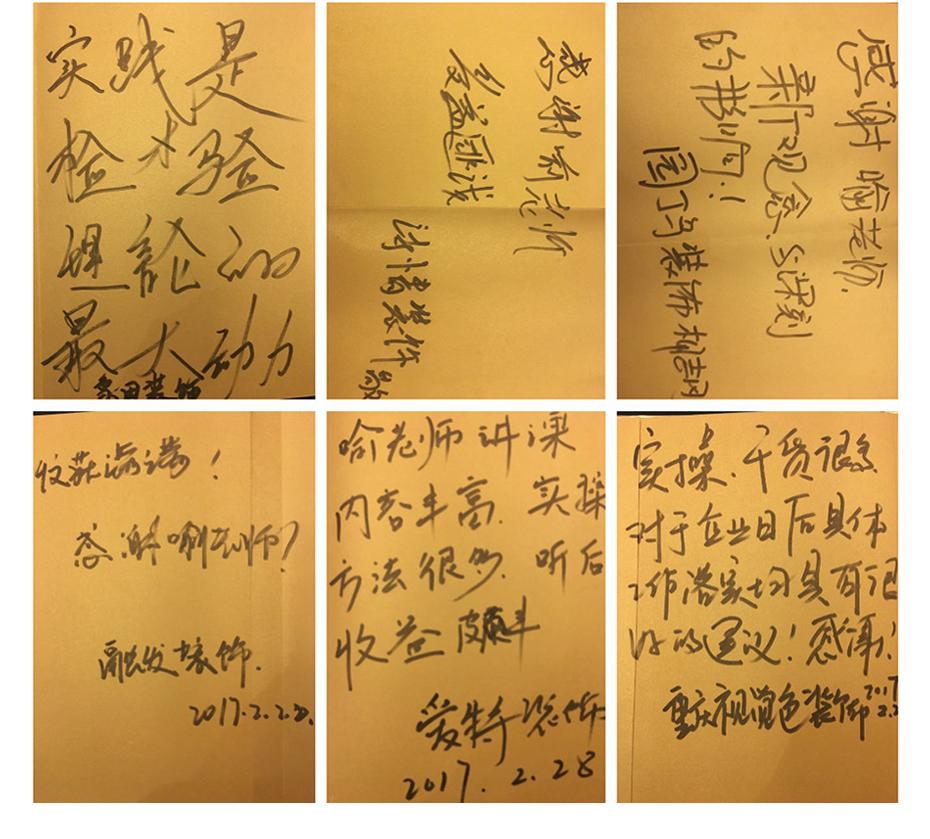 实践是
检才验
理論的
最大动力
装饰
感谢喻老师
受益匪浅
诗情装饰
感谢喻老师.
新观念、与深刻
的
园丁鸟装饰
收获满满!
感谢喻老师!
融发装饰.
2017.2.28.
喻老师讲课
内容丰富.实操
方法很多.听后
收益颇丰
爱特装饰
2017.2.28
实操、干货很多
对于企业日后具体
工作落实均具有很
好的建议!感谢!
重庆视觉色装饰 2017